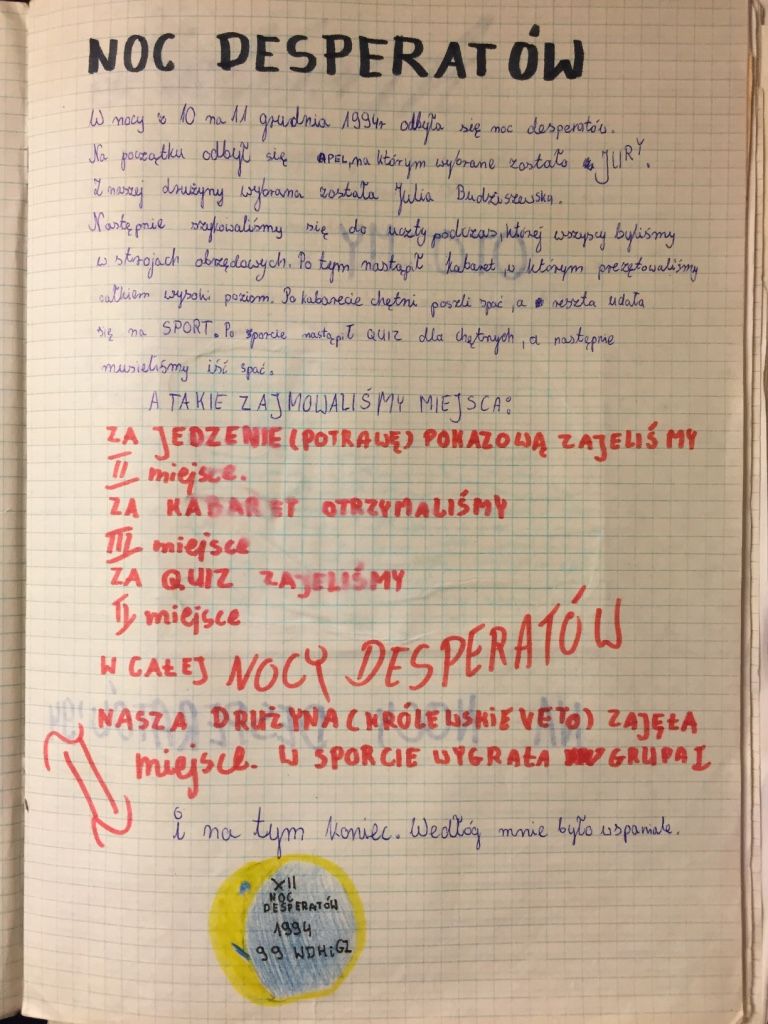 NOC DESPERATÓW
W nocy z 10 na 11 grudnia 1994r odbyła się noc desperatów.
Na początku odbył się APEL, na którym wybrane zostało JURY.
Z naszej drużyny wybrana została Julia Budziszewska.
Następnie szykowaliśmy się do uczty podczas, której wszyscy byliśmy
w strojach obrzędowych. Po tym nastąpił kabaret, w którym prezętowaliśmy
całkiem wysoki poziom. Po kabarecie chętni poszli spać, a reszta udała
się na SPORT. Po sporcie nastąpił QUIZ dla chętnych, a następnie
musieliśmy iść spać.
A TAKIE ZAJMOWALIŚMY MIEJSCA:
ZA JEDZENIE (POTRAWĘ) POKAZOWĄ ZAJELIŚMY
II miejsce.
ZA KABARET OTRZYMALIŚMY
III miejsce
ZA QUIZ ZAJELIŚMY
II miejsce
W CAŁEJ NOCY DESPERATÓW
NASZA DRUŻYNA (KRÓLEWSKIE VETO) ZAJĘŁA
I miejsce. W SPORCIE WYGRAŁA GRUPA I
i na tym koniec. Wedłóg mnie było wspaniale.
XII
NOC
DESPERATÓW
1994
99 WDHiGZ